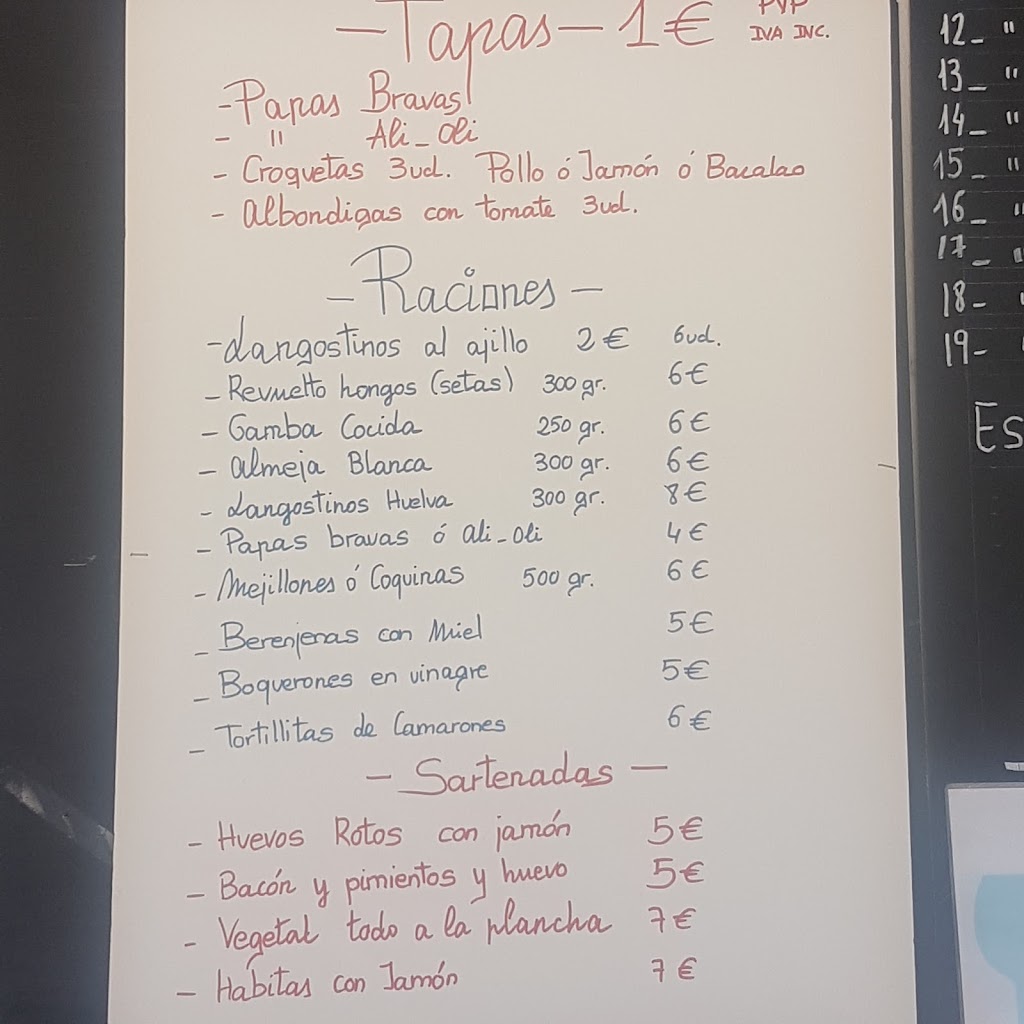 -Tapas- 1€ PVP
IVA INC.
-Papas Bravas
- " Ali-Oli
- Croquetas 3ud. Pollo ó Jamón ó Bacalao
- Albondigas con tomate 3ud.
- Raciones -
-Langostinos al ajillo 2€ 6ud.
- Revuelto hongos (setas) 300 gr. 6€
- Gamba Cocida 250 gr. 6€
- Almeja Blanca 300 gr. 6€
- Langostinos Huelva 300 gr. 8€
- Papas bravas ó ali-oli 4€
- Mejillones ó Coquinas 500 gr. 6€
- Berenjenas con Miel 5€
- Boquerones en vinagre 5€
- Tortillitas de Camarones 6€
- Sartenadas -
- Huevos Rotos con jamón 5€
- Bacón y pimientos y huevo 5€
- Vegetal todo a la plancha 7€
- Habitas con Jamón 7€
12- "
13- "
14- "
15- "
16- "
17- "
18- "
19-
Es